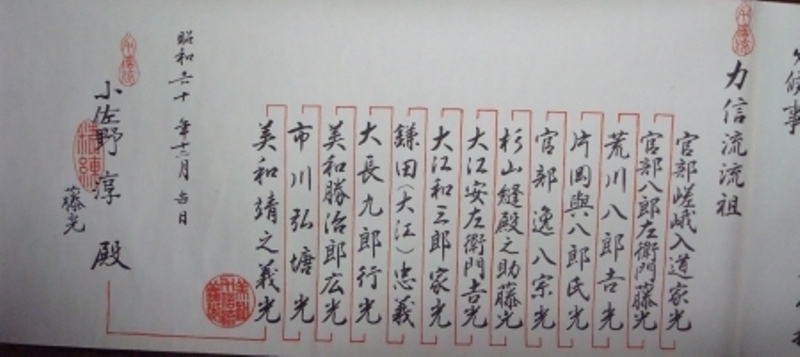 力信流流祖
官部嵯峨入道家光
官部八郎左衛門藤光
荒川八郎吉光
片岡與八郎氏光
官部逸八宗光
杉山縫殿之助藤光
大江安左衛門吉光
大江和三郎家光
鎌田（大江）忠義
大長九郎行光
美和勝治郎広光
市川弘塘光
美和靖之義光
昭和六十年十二月吉日
小佐野淳 殿
藤光